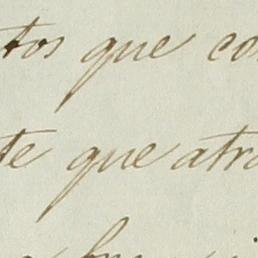 tos que co
te que atra